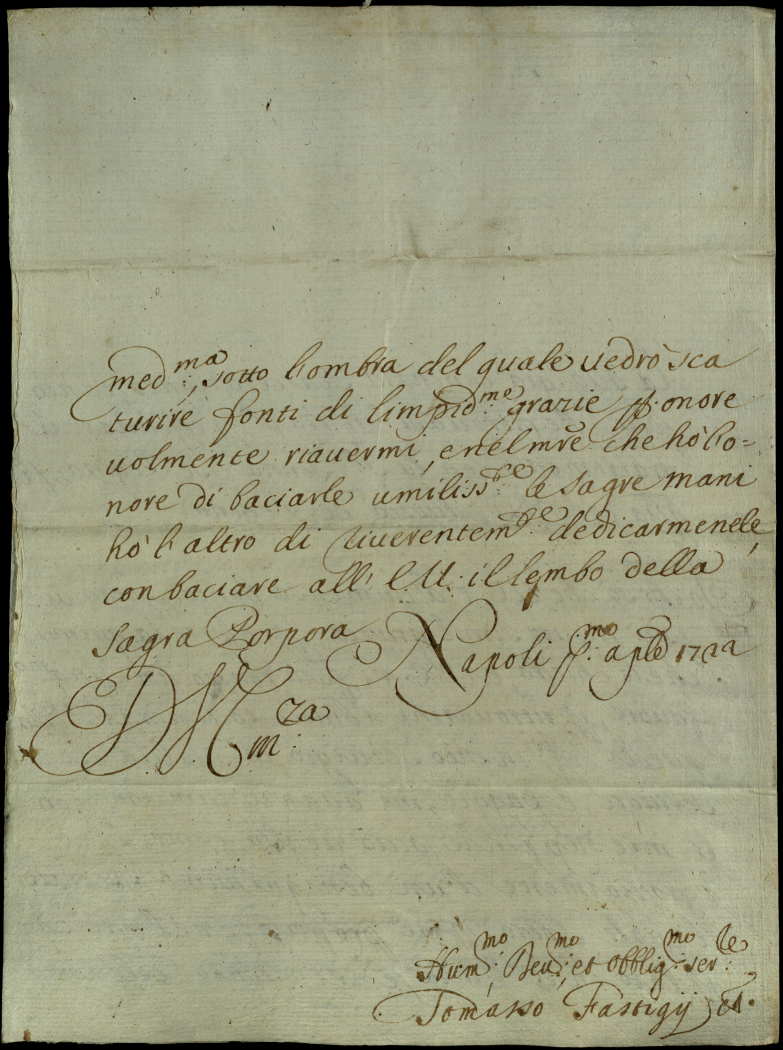 med:ma, sotto l'ombra del quale uedrò sca
turire fonti di limpid:me grazie p onore
uolmente riauermi, e nel mre che hò l'o=
nore di baciarle umiliss:te le sagre mani
hò l'altro di riuerentem:te dedicarmenele,
con baciare all' E.V. il lembo della
Sagra Porpora Napoli p:mo aple 1722
D V Em:za
Hum:mo Deu:mo et obblig:mo ser:le
Tomasso Fastigij